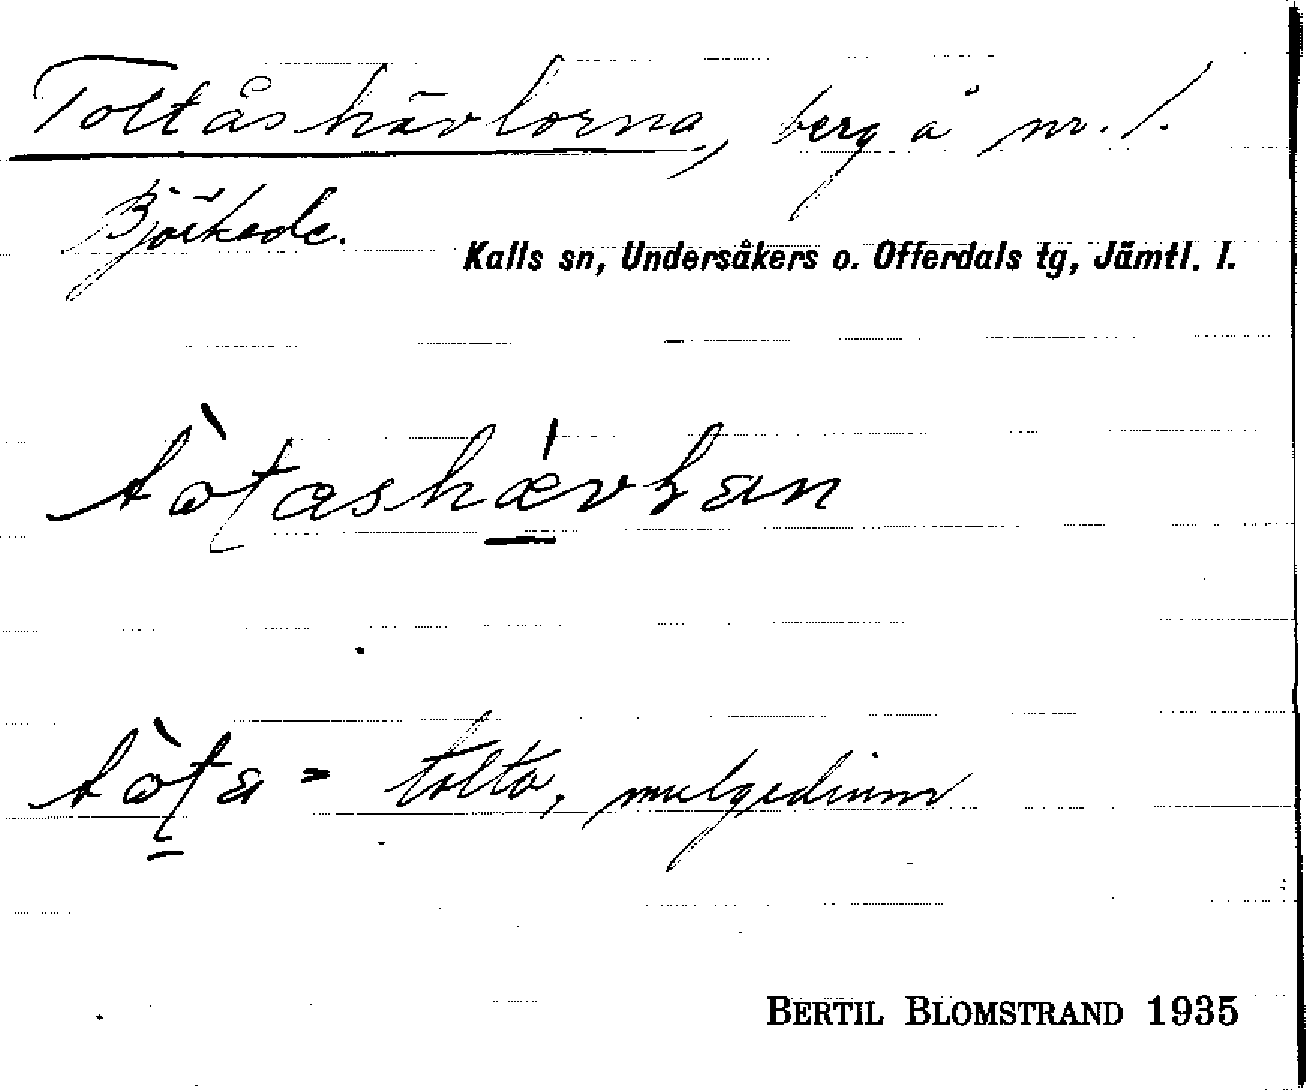 Toltåshävlorna, berg å nr. 1.
Björkede.
Kalls sn, Undersåkers o. Offerdals tg, Jämtl. l.
= tolta, mulgedium
BERTIL BLOMSTRAND 1935